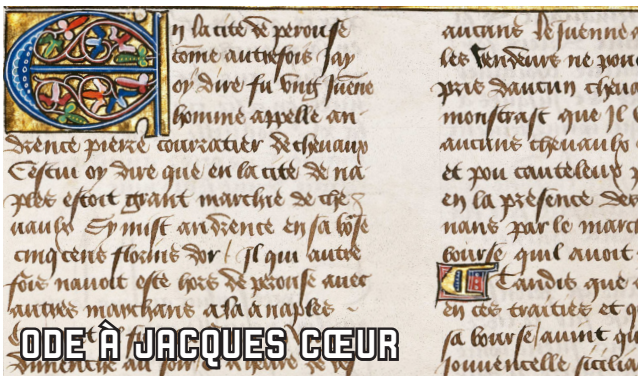 En la cite de perouse
come autrefois Jay
oy dire fu vng Juene
homme appelle an
drence pierre courratier de cheuaux
Cestui oy dire que en la cite de na
ples estoit grant marchie de che
uaulx Sy mist andrence en sa bo'se
cinq cens florins dor / Il qui autre
fois nauoit este hors de perouse auec
autres marchans ala a naples .
dimenche au soir
aucuns Le Juenne a
les vendeurs ne pou
pris daucun cheua
monstrast que Il
aucuns cheuaulx
et pou cauteleux
en la presence
nans par le march
bourse quil auoit
Tandis que
en ces traities et q
sa bourse / auint qu
Jouuencelle sicilia
ODE À JACQUES CŒUR